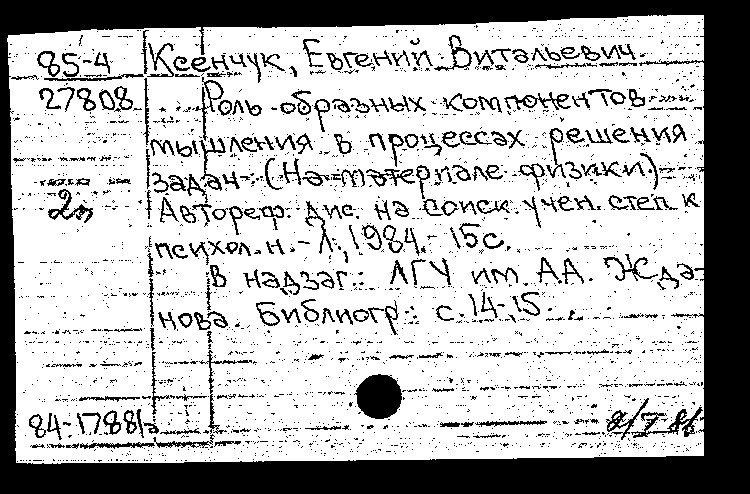 85-4 Ксенчук, Евгений Витальевич
27808 Роль образных компонентов
мышления в процессах решения
задач (На материале физики)
2п Автореф. дис. на соиск. учен. степ. к
психол. н. - Л., 1984. - 15 с.
В надзаг.: ЛГУ им. А.А. Жда-
нова. Библиогр.: с. 14-15.
84-17881а